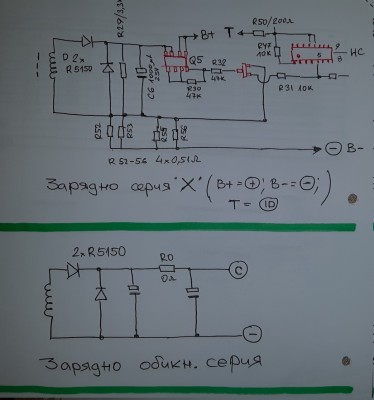 R50/200Ω
B+
T
R29/3,3K
R47
10K
7
8
HC
D 2x
R5150
C6 1000µF
25V
Q5
R32
47K
R30
47K
R31 10K
R52
R53
R55
R56
R52-56 4x0,51Ω
− B-
Зарядно серия "X" (B+ = +; B- = −;
T = ID)
2xR5150
R0
0Ω
C
−
Зарядно обикн. серия